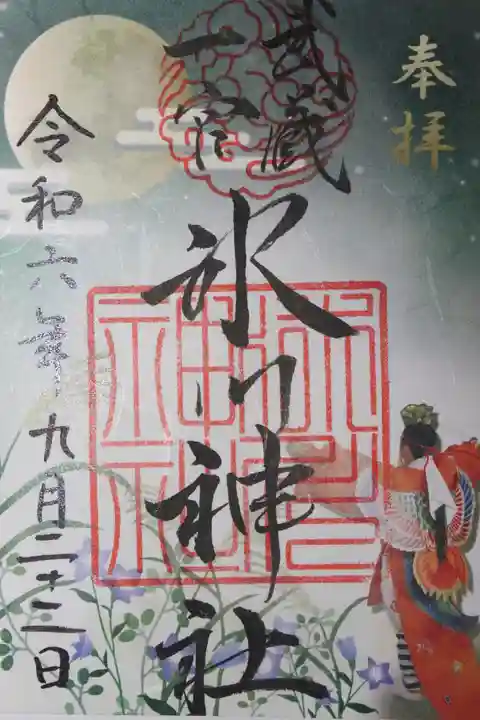 奉拝
武蔵
一宮
氷川神社
令和六年九月二十二日
氷川
神社